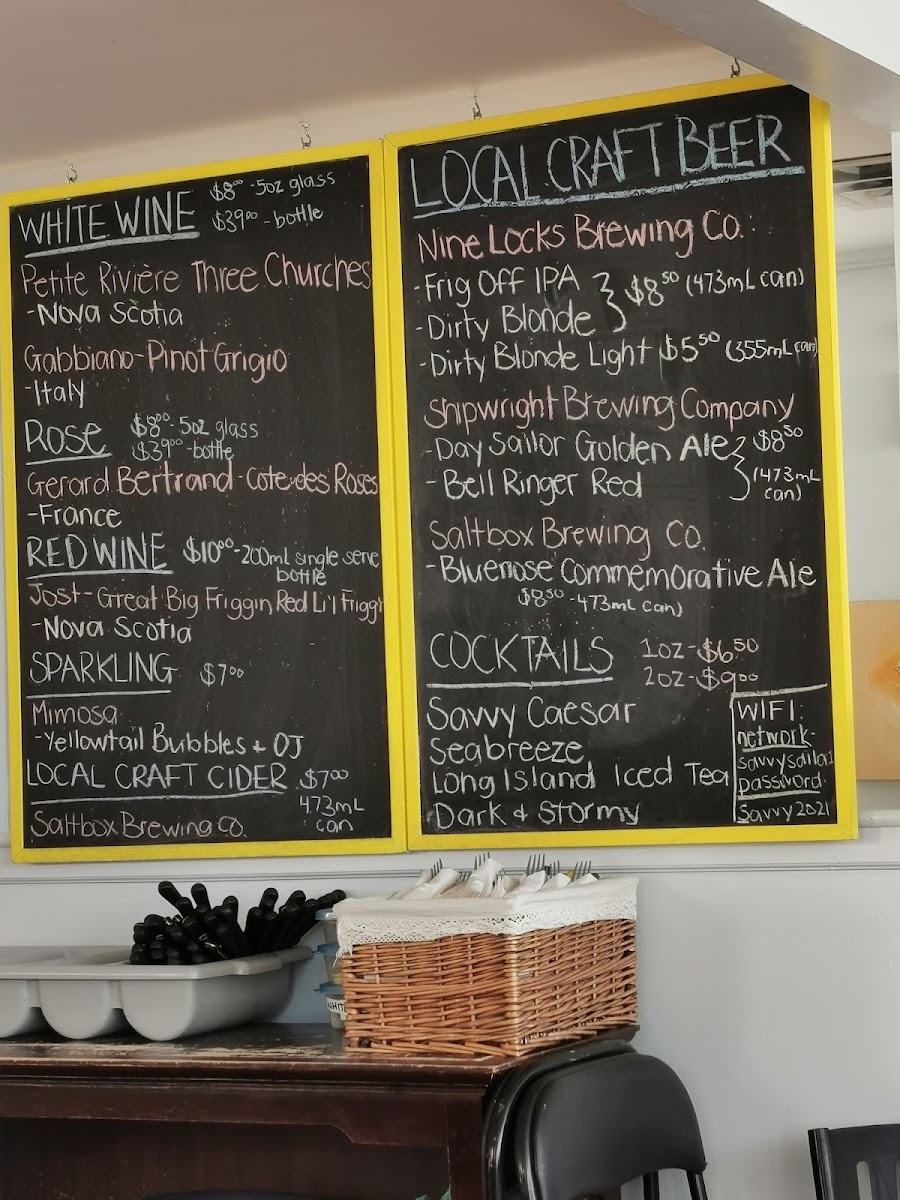 WHITE WINE $8.00 -5oz glass
$39.00 - bottle
Petite Rivière Three Churches
-Nova Scotia
Gabbiano-Pinot Grigio
-Italy
Rose $8.00- 5oz glass
$39.00 -bottle
Gerard Bertrand-Cote des Roses
-France
RED WINE $10.00-200mL single serve
bottle
Jost-Great Big Friggin Red Li'l Friggr
-Nova Scotia
SPARKLING $7.00
Mimosa
-Yellowtail Bubbles + OJ
LOCAL CRAFT CIDER $7.00
473mL
can
Saltbox Brewing Co.
LOCAL CRAFT BEER
Nine Locks Brewing Co.
-Frig Off IPA
-Dirty Blonde
$8.50 (473mL can)
-Dirty Blonde Light $5.50 (355mL can)
Shipwright Brewing Company
-Day Sailor Golden Ale
-Bell Ringer Red
$8.50
(473mL
can)
Saltbox Brewing Co.
-Bluenose Commemorative Ale
$8.50 -473mL can)
COCKTAILS 1oz-$6.50
2oz-$9.00
Savvy Caesar
Seabreeze
Long Island Iced Tea
Dark & Stormy
WIFI:
network-
password:
Savvy2021